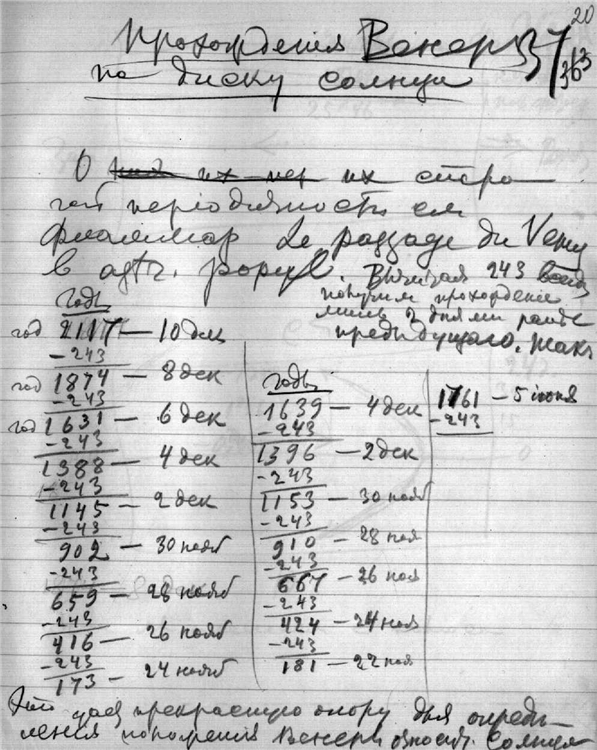 20
37/363
Прохождения Венеры
по диску солнца
О их стро
гой періодичности см
Фламмар Le passage du Venus
в astr. popul. Вычитая 243 всегда
получим прохождение
лишь 2 днями раньше
предыдущаго. Так:
Годы
год 2117 — 10 дек
-243
год 1874 — 8 дек
-243
год 1631 — 6 дек
-243
1388 — 4 дек
-243
1145 — 2 дек
-243
902 — 30 нояб
-243
659 — 28 нояб
-243
416 — 26 нояб
-243
173 — 24 нояб
годы
1639 — 4 дек
-243
1396 — 2 дек
-243
1153 — 30 нояб
-243
910 — 28 ноя
-243
667 — 26 ноя
-243
424 — 24 ноя
-243
181 — 22 ноя
1761 — 5 іюня
-243
Это дает прекрасную опору для опреде-
ления Венеры относит. Солнца